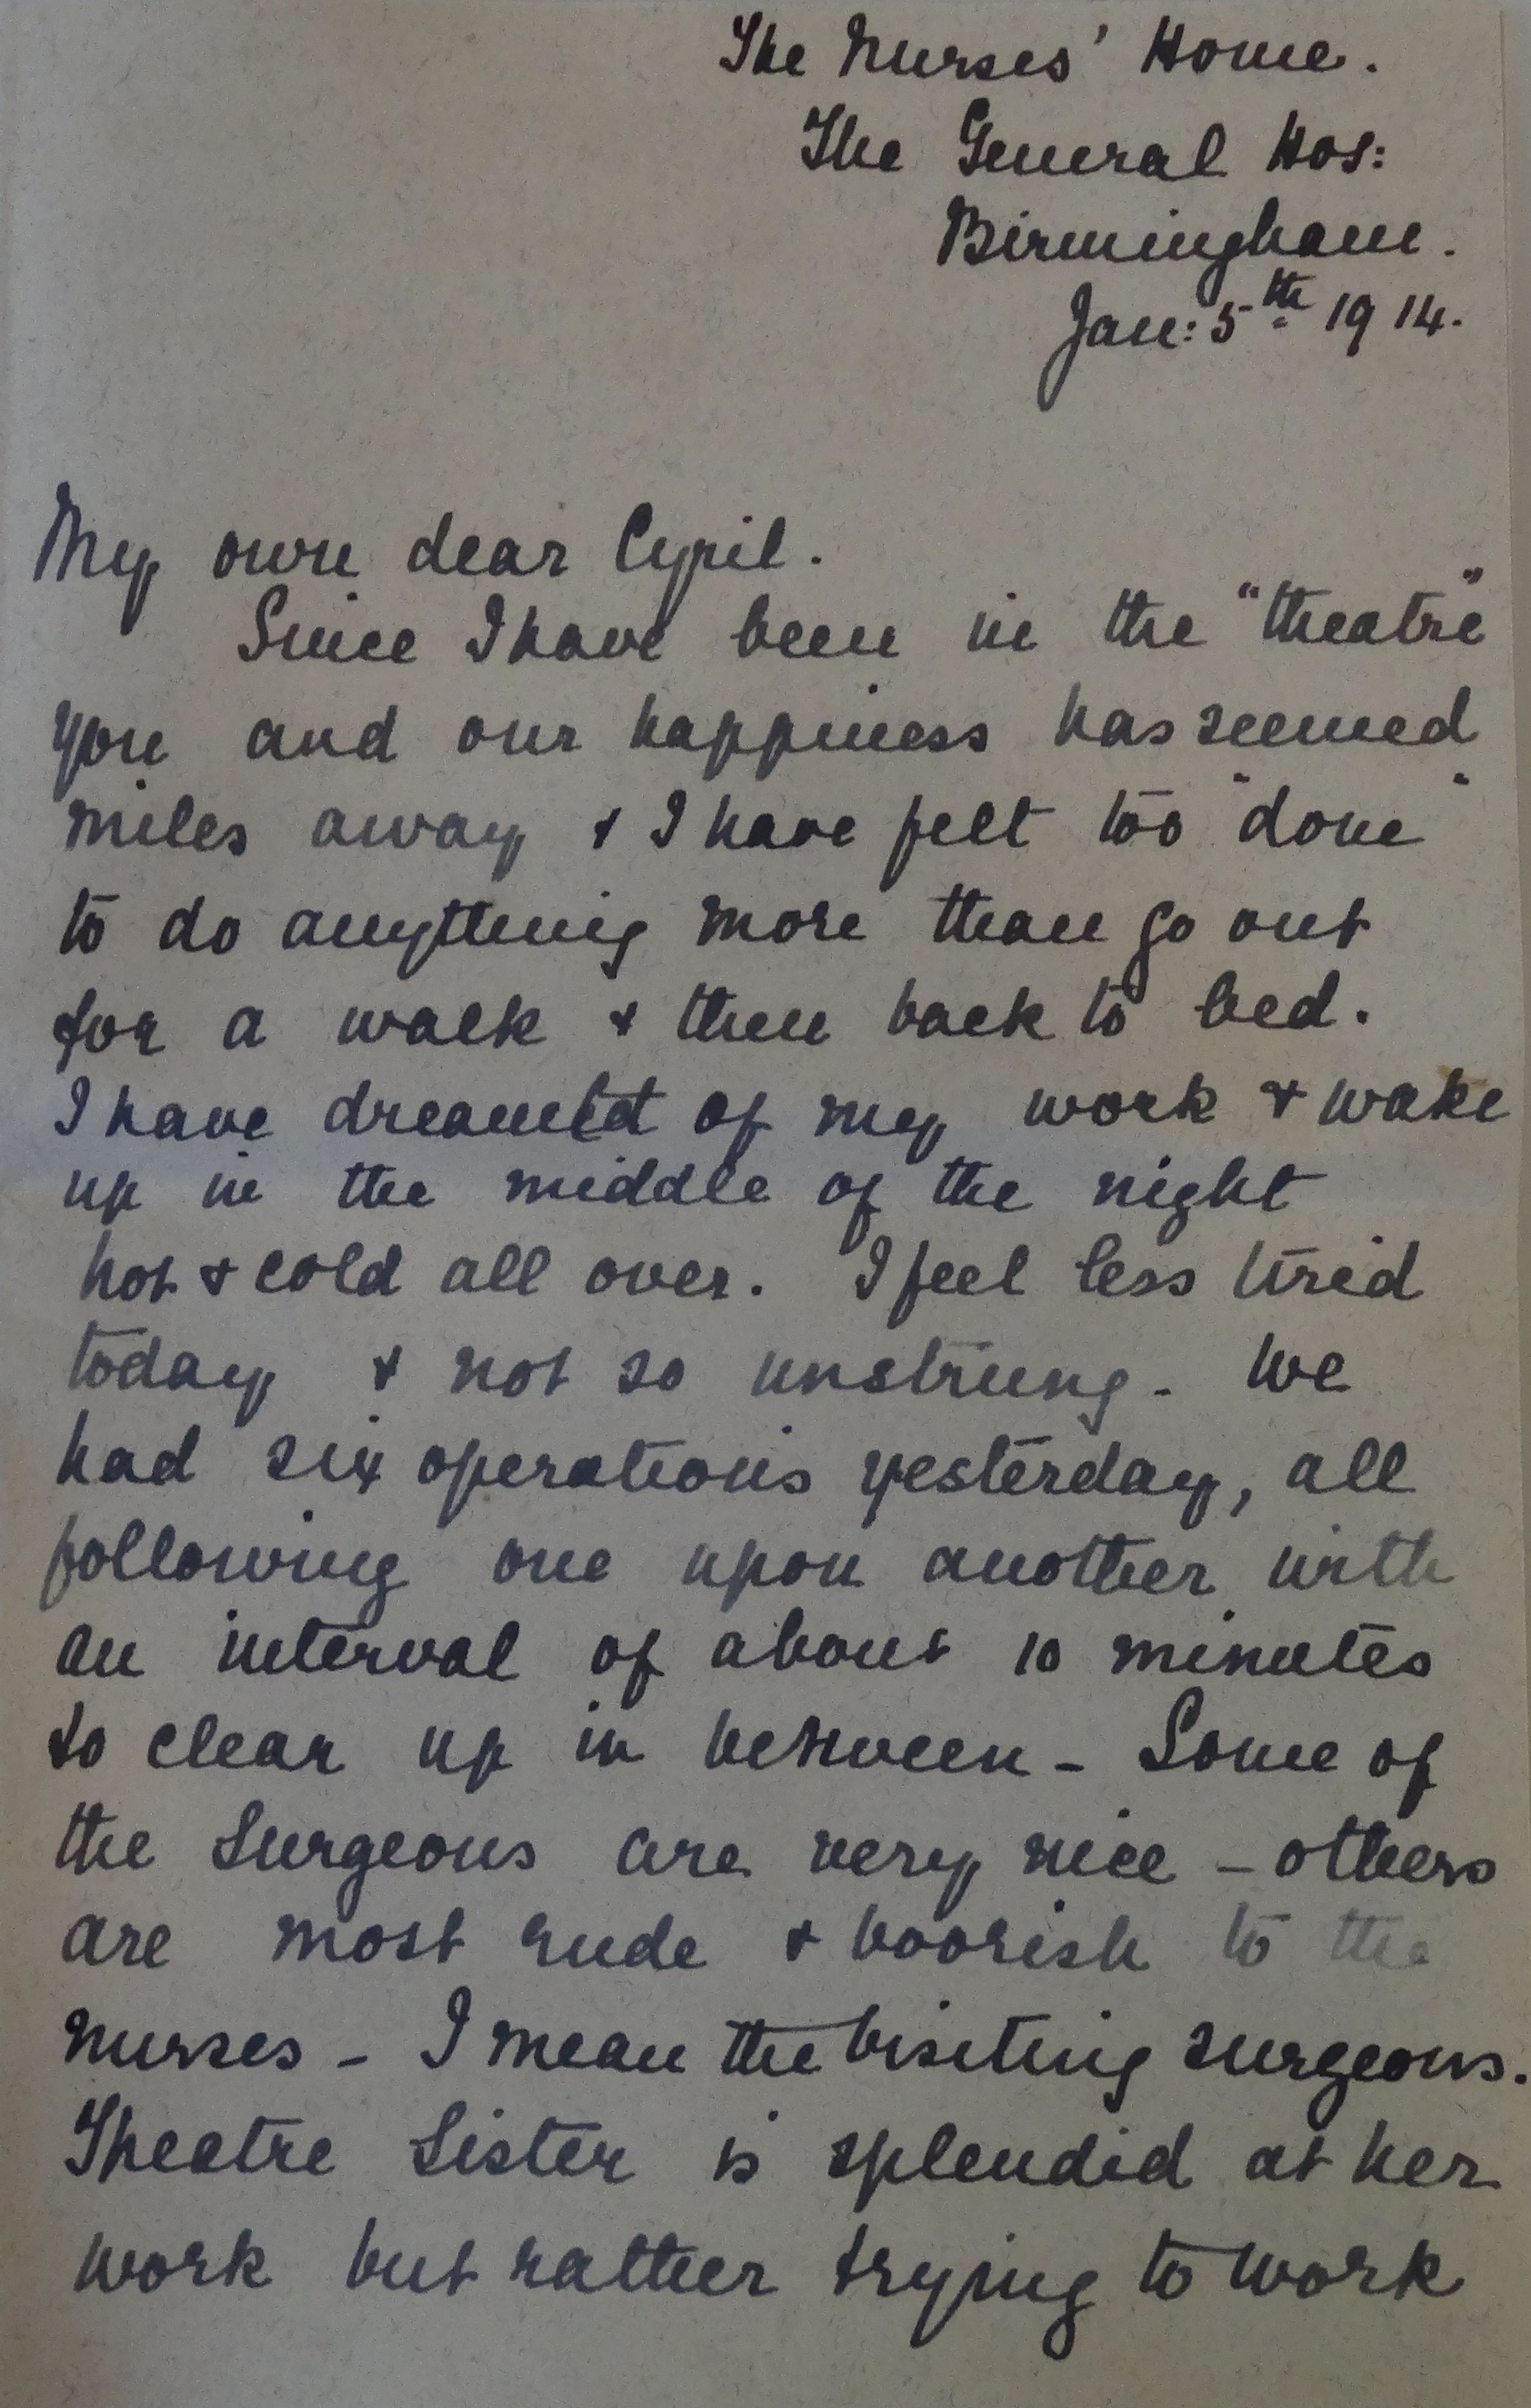 The Nurses' Home.
The General Hos:
Birmingham.
Jan: 5th 1914.
My own dear Cyril.
Since I have been in the "theatre"
you and our happiness has seemed
miles away & I have felt too "done"
to do anything more than go out
for a walk & then back to bed.
I have dreamed of my work & wake
up in the middle of the night
hot & cold all over. I feel less tired
today & not so unstrung - We
had six operations yesterday, all
following one upon another with
an interval of about 10 minutes
to clear up in between - Some of
the Surgeons are very nice - others
are most rude & boorish to the
nurses - I mean the visiting surgeons.
Theatre Sister is splendid at her
work but rather trying to work